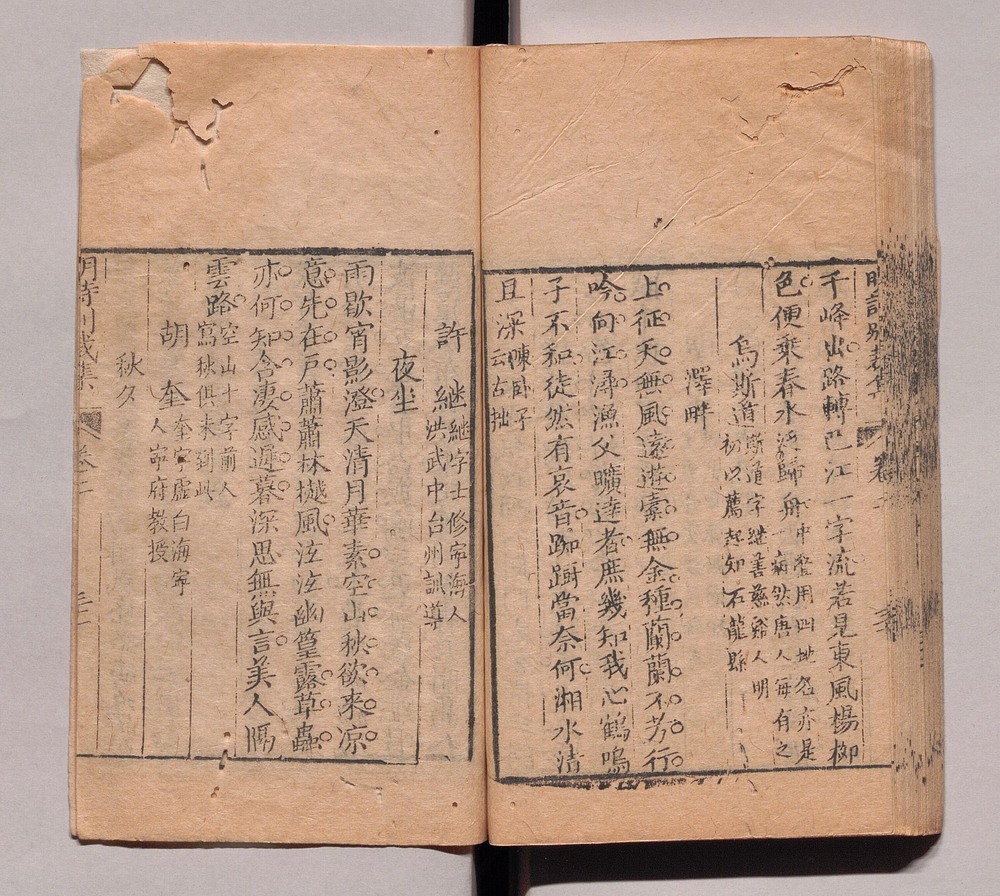 明詩別裁集 卷
千峰出路轉巴江一字流若見東風楊柳
色便乘春水泝歸舟
用四地名亦是
一病然唐人每有之
烏斯道
斯道字繼善慈谿人明
初以薦起知石龍縣
澤畔
上征天無風遠遊橐無金種蘭蘭不芳行
吟向江潯漁父曠達者庶幾知我心鶴鳴
子不和徒然有哀音踟躕當奈何湘水清
且深
陳臥子
云古拙
許繼
繼字士修寧海人
洪武中台州訓導
夜坐
雨歇宵影澄天清月華素空山秋欲來涼
意先在戶蕭蕭林樾風泫泫幽篁露草蟲
亦何知令淒感遲暮深思無與言美人隔
雲路
空山十字前人
寫秋俱未到此
胡奎
奎字虛白海寧
人寧府教授
秋夕
明詩別裁集 卷二